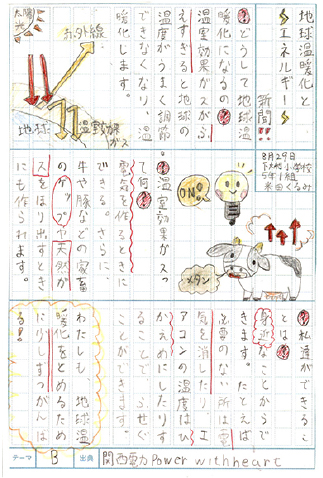 地球温暖化と
エネルギー
新聞!!
8月29日
小学校
5年1組
米田くるみ
?どうして温
暖化になるの?
温室効果ガスがふ
えすぎると地球の
温度がうまく調節
できなくなり、温
暖化します。
太陽光
赤外線
地球
温室効果ガス
?温室効果ガスっ
て何?
電気を作るときに
できる。さらに、
牛や豚などの家畜
のゲップや天然ガ
スをほり出すとき
にも作られます。
ON!
メタン
?私達ができるこ
とは?
身近なことからで
きます。たとえば
必要のない所は電
気を消したり、エ
アコンの温度はひ
かえめにしたりす
ることでふせぐ
ことができます。
わたしも、地球温
暖化をとめるため
に少しずつがんば
る!
テーマ B 出典 関西電力 power with heart